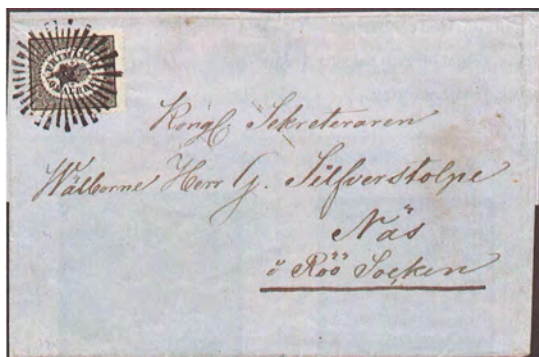 Kongl Sekreteraren
Wälborne Herr G. Silfverstolpe
Näs
i Röö Socken